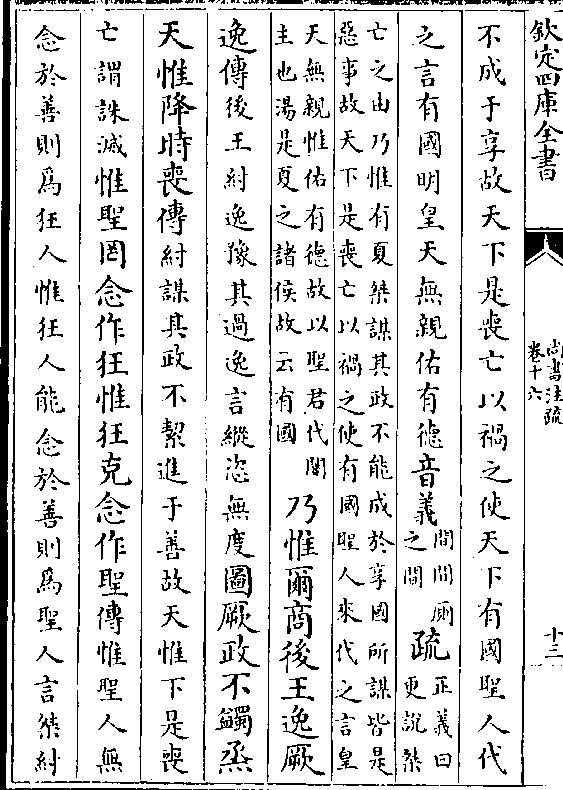 欽定四庫全書
尚書注疏
卷十六
十三
不成于享故天下是喪亡以禍之使天下有國聖人代
之言有國明皇天無親佑有德音義
間間厠
之間
疏
正義曰
更說桀
亡之由乃惟有夏桀謀其政不能成於享國所謀皆是
惡事故天下是喪亡以禍之使有國聖人來代之言皇
天無親惟佑有德故以聖君代闇
主也湯是夏之諸侯故云有國
乃惟爾商後王逸厥
逸傳後王紂逸豫其過逸言縱恣無度圖厥政不蠲烝
天惟降時喪傳紂謀其政不絜進于善故天惟下是喪
亡謂誅滅惟聖罔念作狂惟狂克念作聖傳惟聖人無
念於善則為狂人惟狂人能念於善則為聖人言桀紂